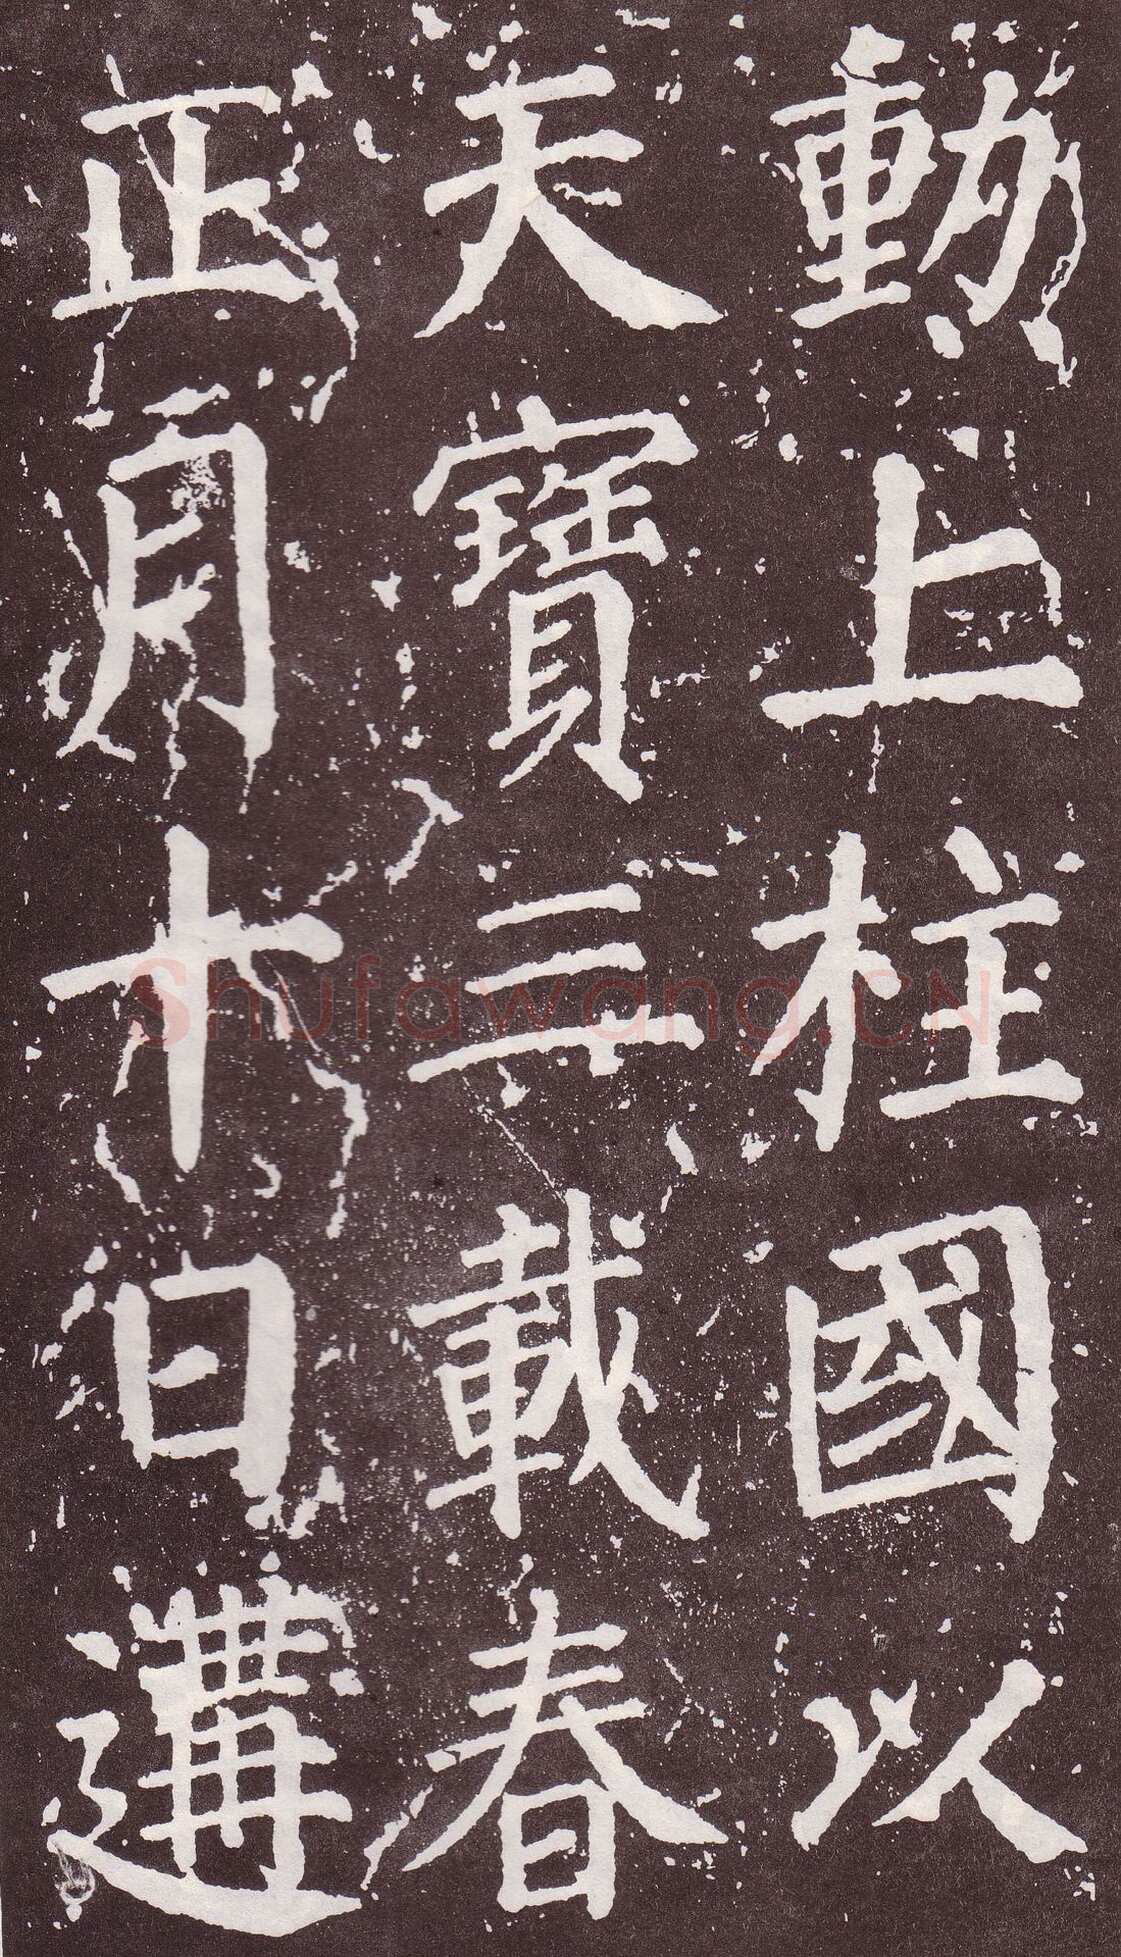 動上柱國以
天寶三載春
正月十日遘
Shufawang.CN